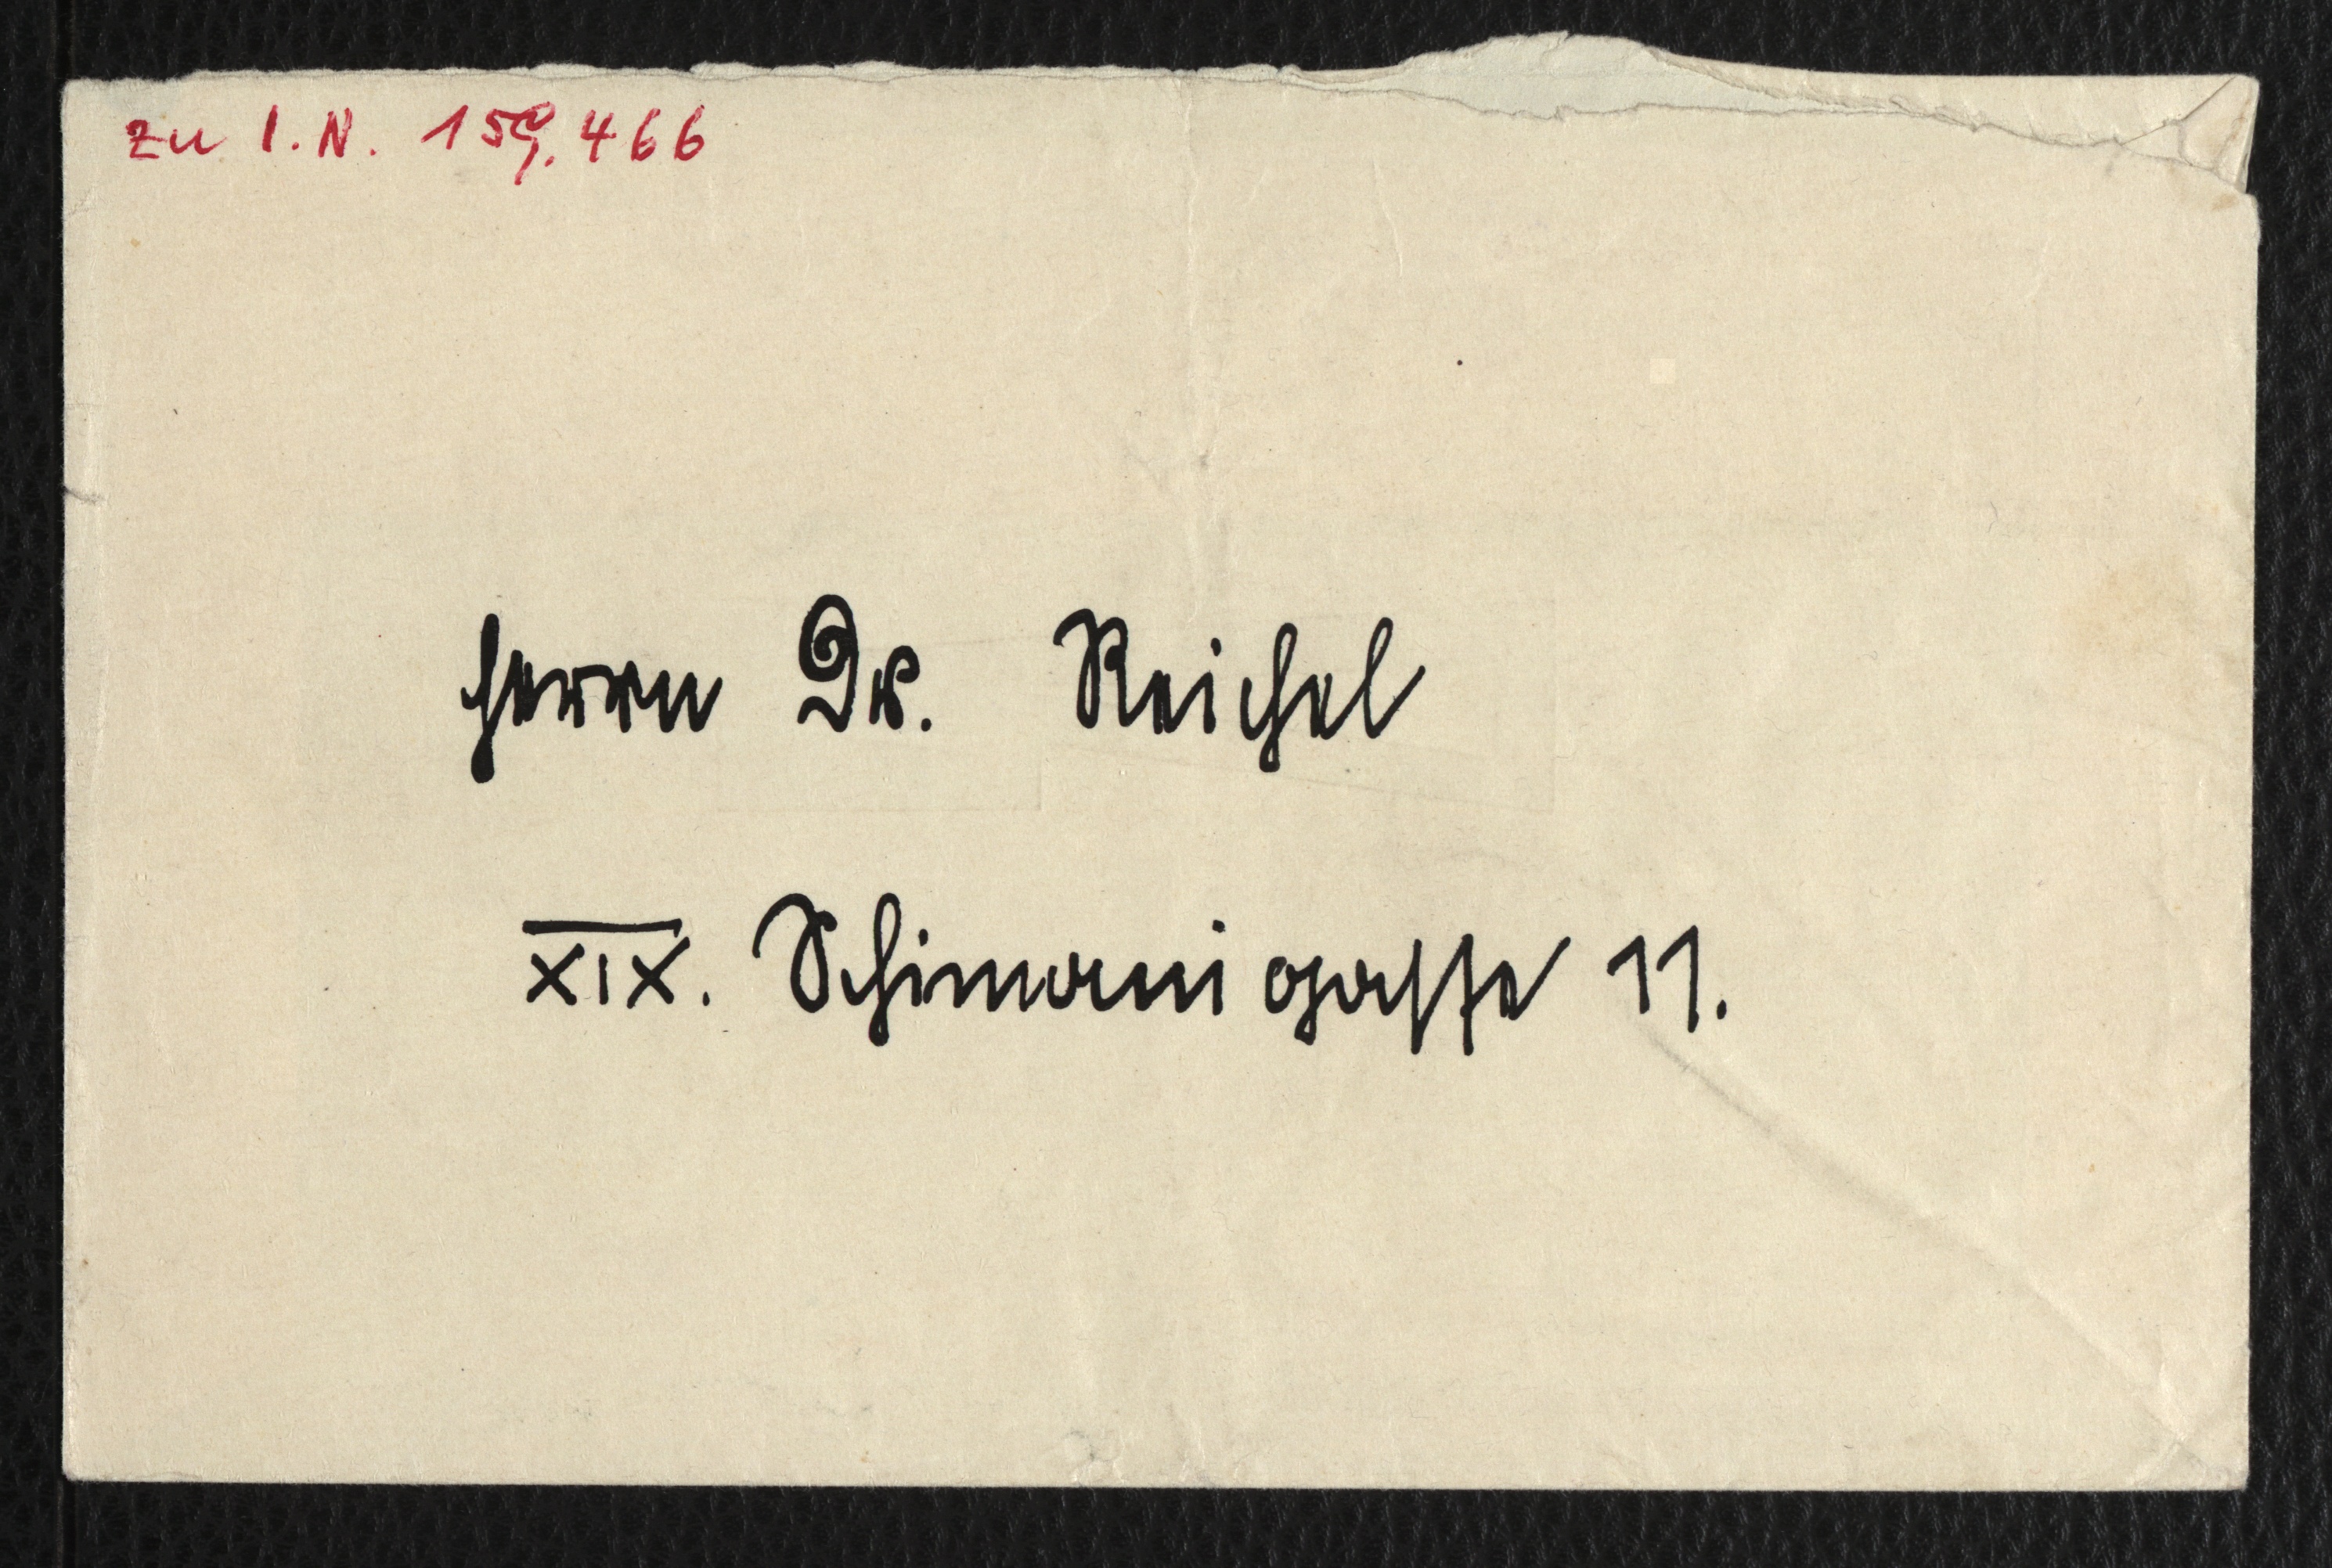 zu I. N. 159.466
Herrn Dr. Reichel
XIX. Schimanigasse 11.